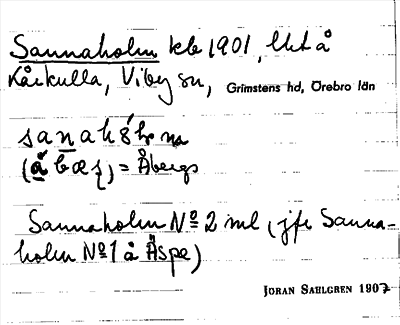 Sannaholm kb 1901, lht å
Kårkulla, Viby sn, Grimstens hd, Örebro län
sanah
= Åbergs
Sannaholm Nº 2 ml (jfr Sanna-
holm Nº 1 å Äspe)
JÖRAN SAHLGREN 1907